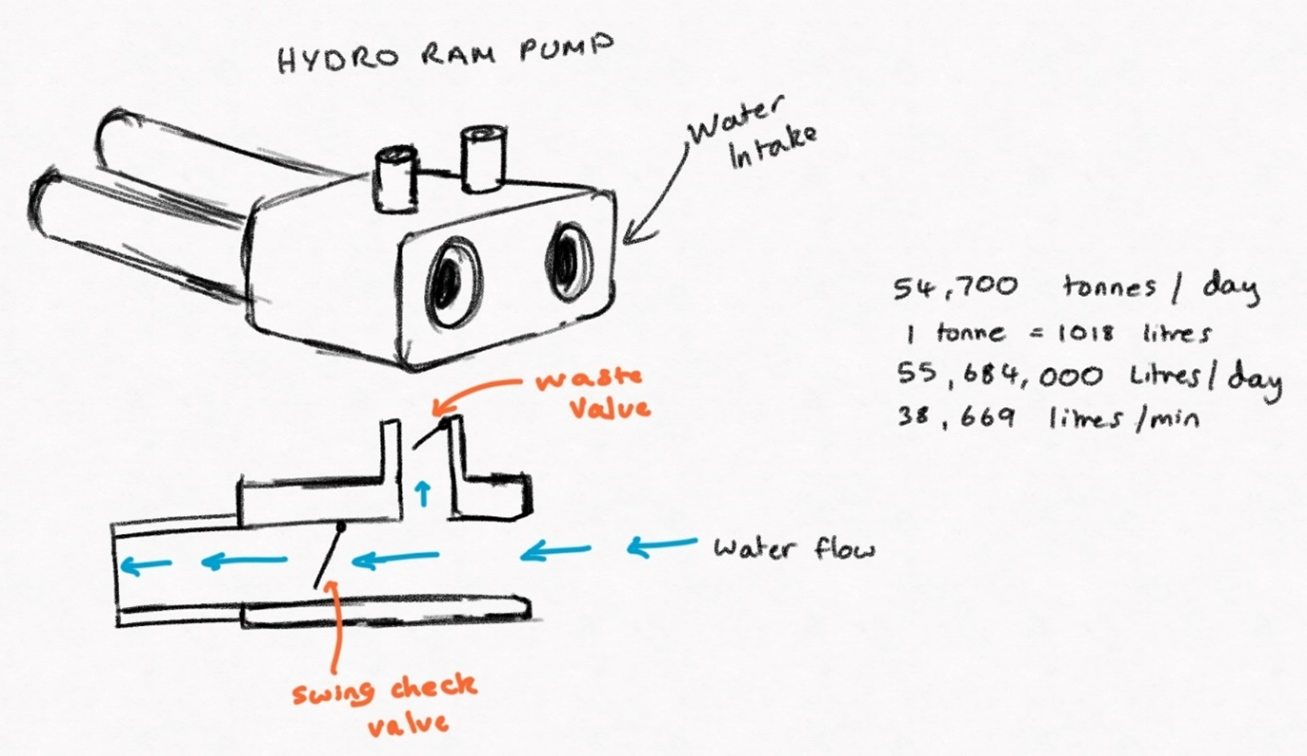 HYDRO RAM PUMP
Water
Intake
54,700 tonnes / day
1 tonne = 1018 litres
55,684,000 Litres/day
38,669 litres/min
waste
valve
water flow
swing check
valve